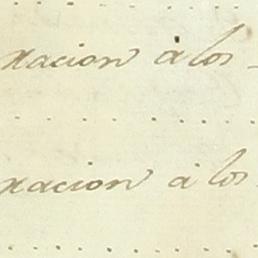 xacion à los
xacion à los